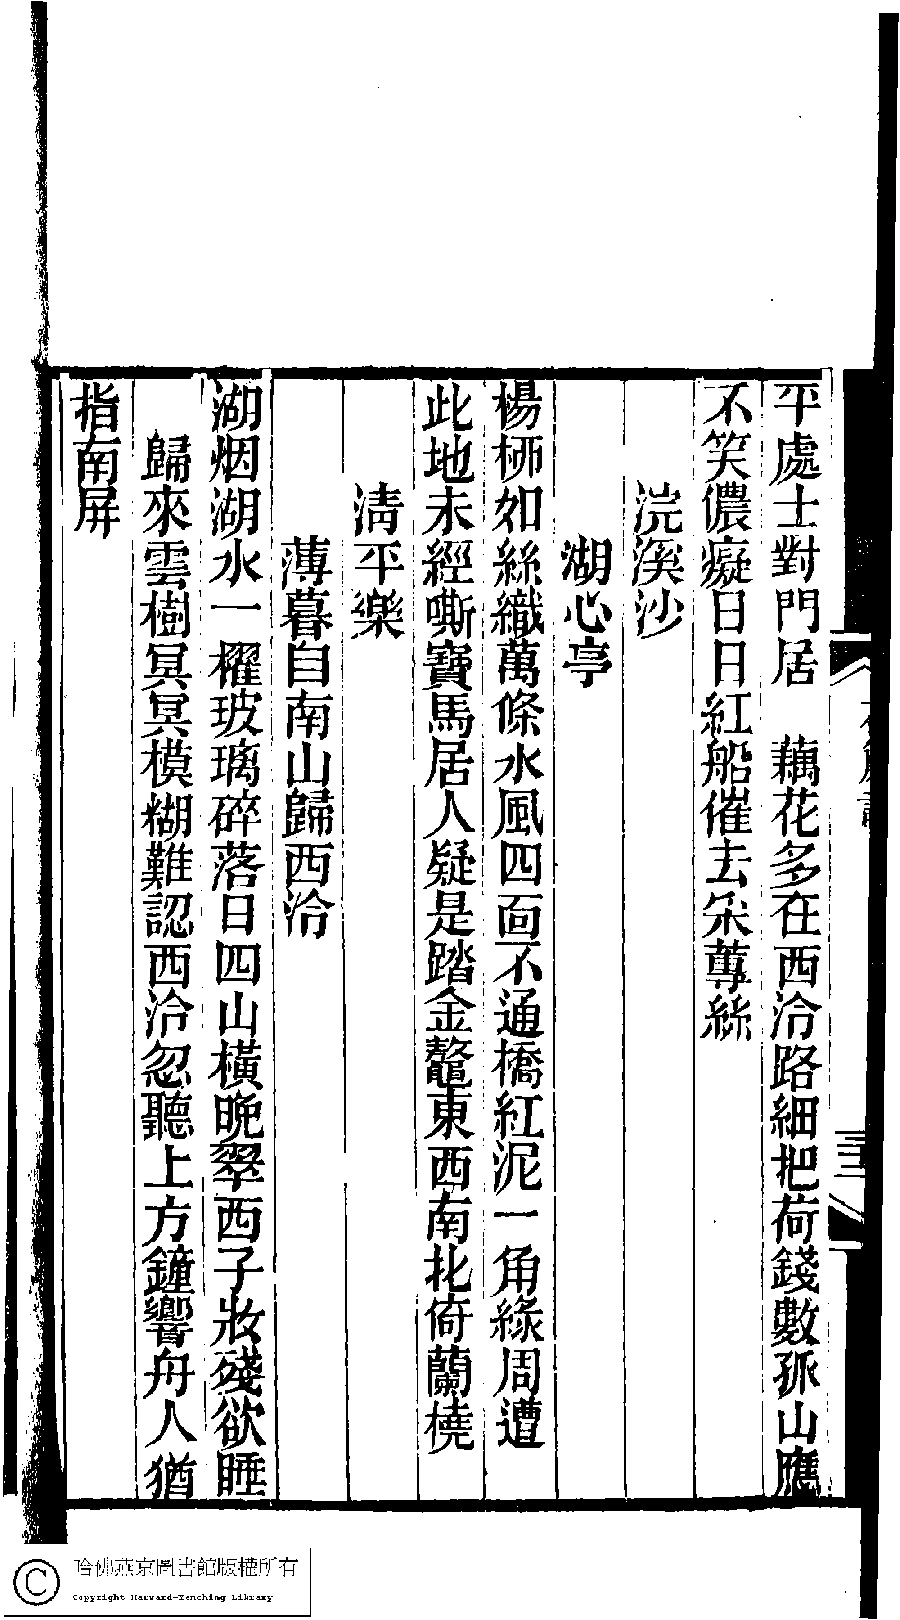 平處士對門居　藕花多在西泠路細把荷錢數孤山應
不笑儂癡日日紅船催去采蓴絲
浣溪沙
湖心亭
楊栁如絲織萬條水風四面不通橋紅泥一角綠周遭
此地未經嘶寶馬居人疑是踏金鼇東西南北倚蘭橈
淸平樂
薄暮自南山歸西泠
湖烟湖水一櫂玻璃碎落日四山橫晚翠西子妝殘欲睡
歸來雲樹冥冥模糊難認西泠忽聽上方鐘響舟人猶
指南屏
三
哈佛燕京圖書館版權所有
Copyright Harvard-Yenching Library